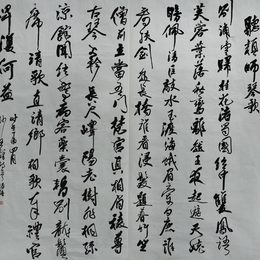 聽穎師琴歌
別浦雲歸桂花渚蜀國絃中雙鳳語
芙蓉葉落秋鸞離越王夜起遊天姥
暗佩清臣敲水玉渡海蛾眉牽白鹿誰
看挾劍赴長橋誰看浸髮題春竹竺
僧前立當吾門梵宮真相眉稜尊
古琴大軫長八尺嶧陽老樹非桐孫
涼館聞絃驚病客藥囊暫別龍鬚
席請歌直請卿相歌奉禮官
卑復何益